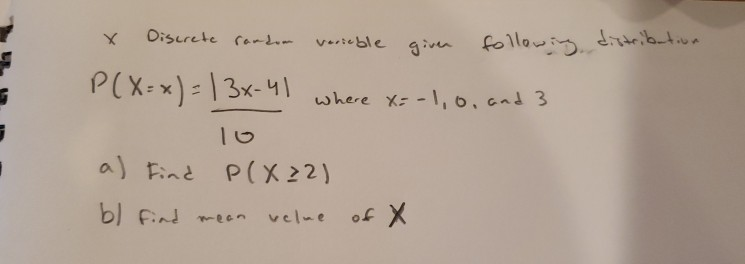 X Discrete random variable given following distribution
P(X=x) = |3x-4| where x= -1, 0, and 3
10
a) Find P(X≥2)
b) find mean velue of X